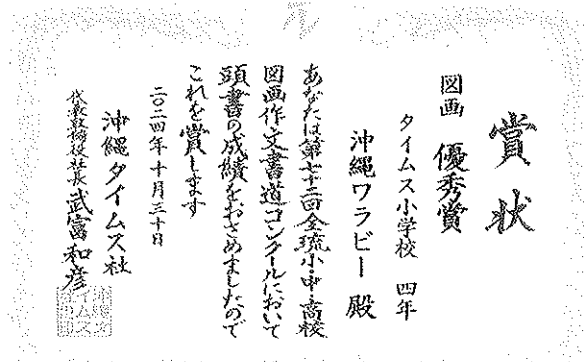 賞状
図画 優秀賞
タイムス小学校 四年
沖縄ワラビー 殿
あなたは第七十二回全琉小・中・高校
図画作文書道コンクールにおいて
頭書の成績をおさめましたので
これを賞します
二〇二四年十月三十日
沖縄タイムス社
代表取締役社長 武富和彦